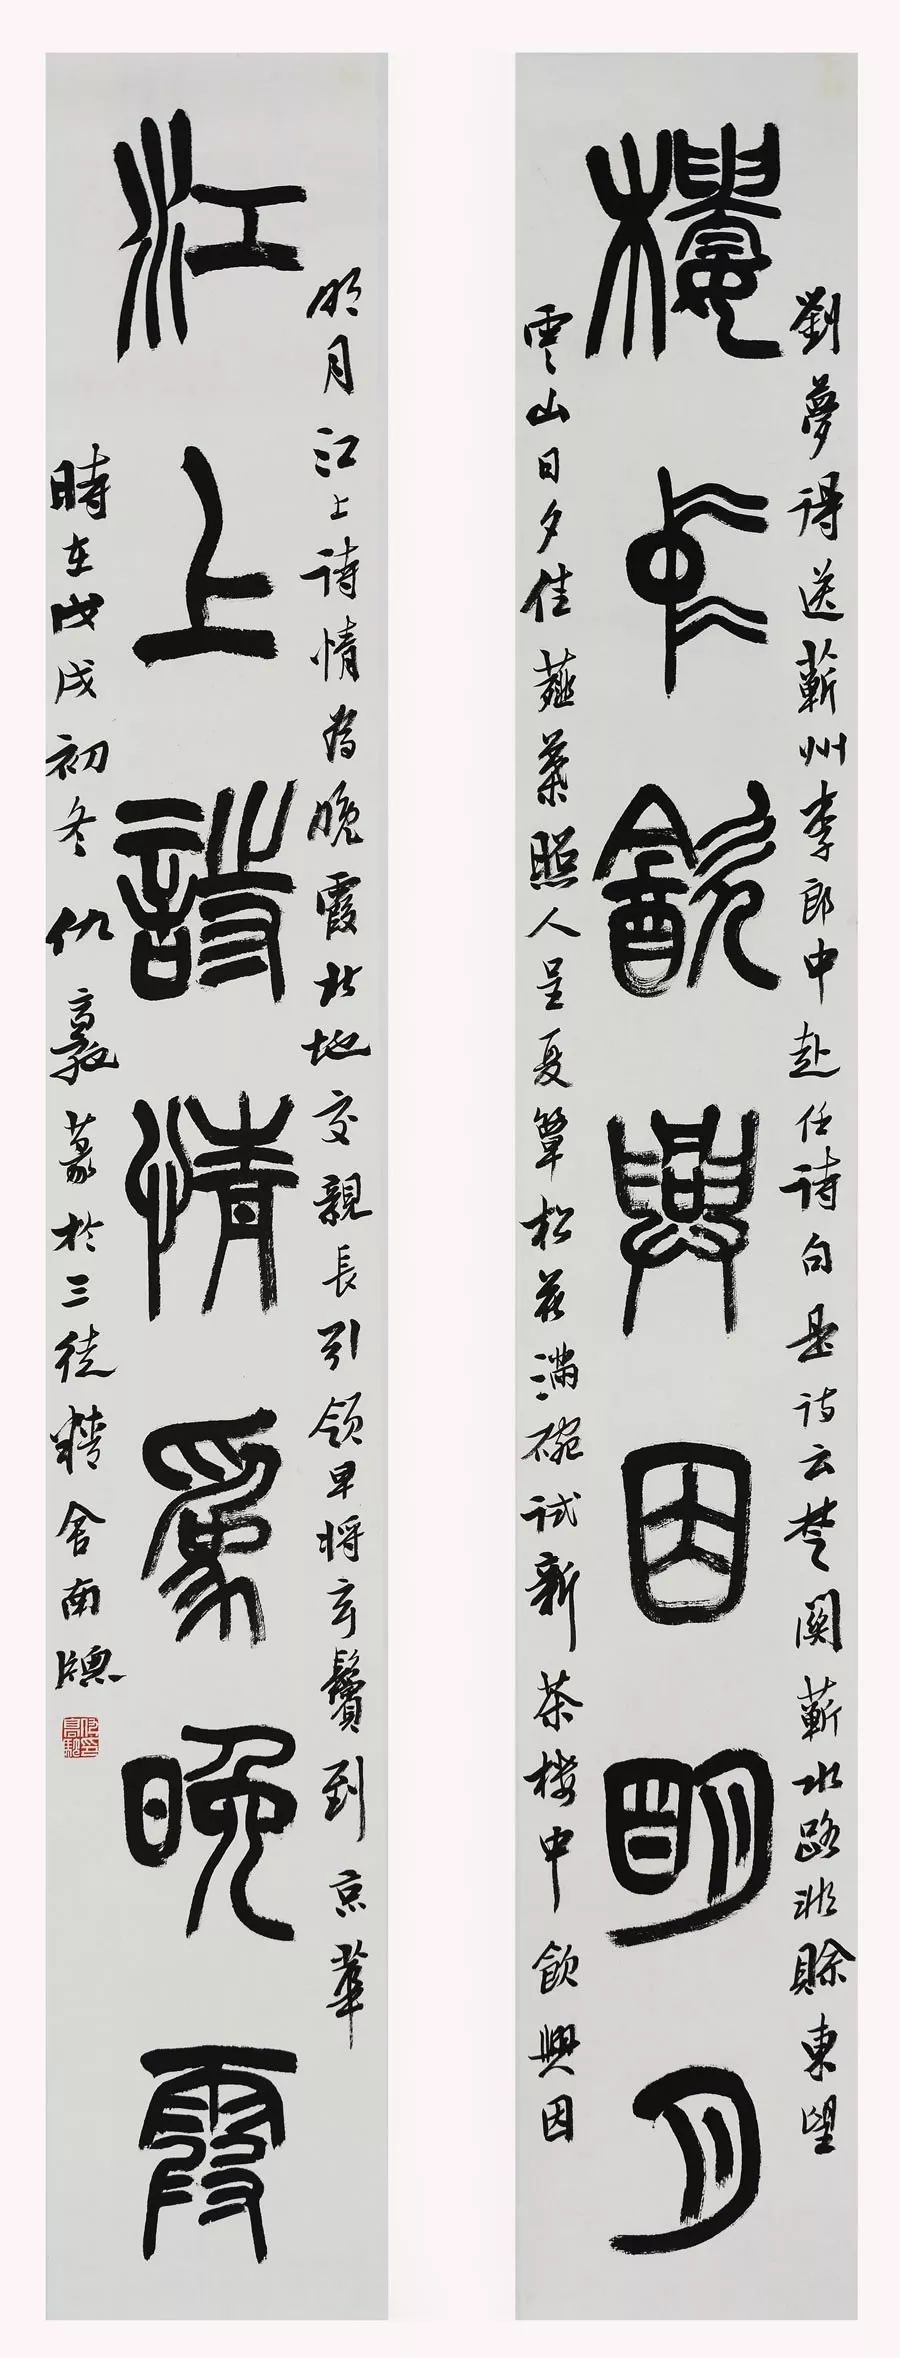 樓中飲興因明月
劉夢得送蘄州李郎中赴任詩句是詩云楚關蘄水路非賒東望
雲山日夕佳薤葉照人呈夏簟松花滿碗試新茶樓中飲興因
江上詩情爲晚霞
明月江上詩情為晚霞北地交親長引領早將玄鬢到京華
時在戊戌初冬仇篆於三精舍南牕